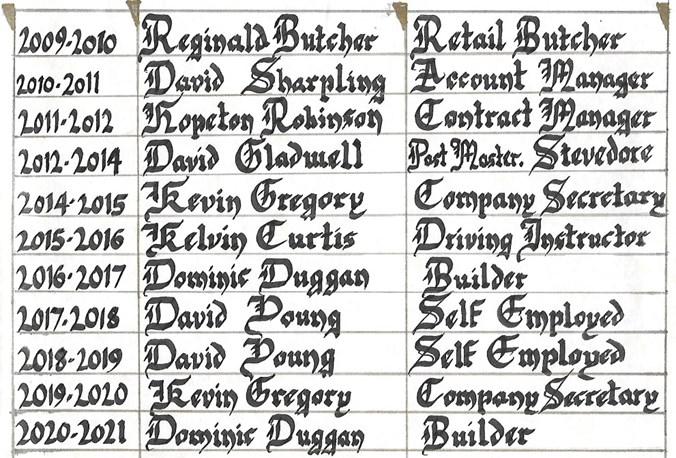 2009-2010 Reginald Butcher Retail Butcher
2010-2011 David Sharpling Account Manager
2011-2012 Hopeton Robinson Contract Manager
2012-2014 David Gladwell Post Master. Stevedore
2014-2015 Kevin Gregory Company Secretary
2015-2016 Kelvin Curtis Driving Instructor
2016-2017 Dominic Duggan Builder
2017-2018 David Young Self Employed
2018-2019 David Young Self Employed
2019-2020 Kevin Gregory Company Secretary
2020-2021 Dominic Duggan Builder